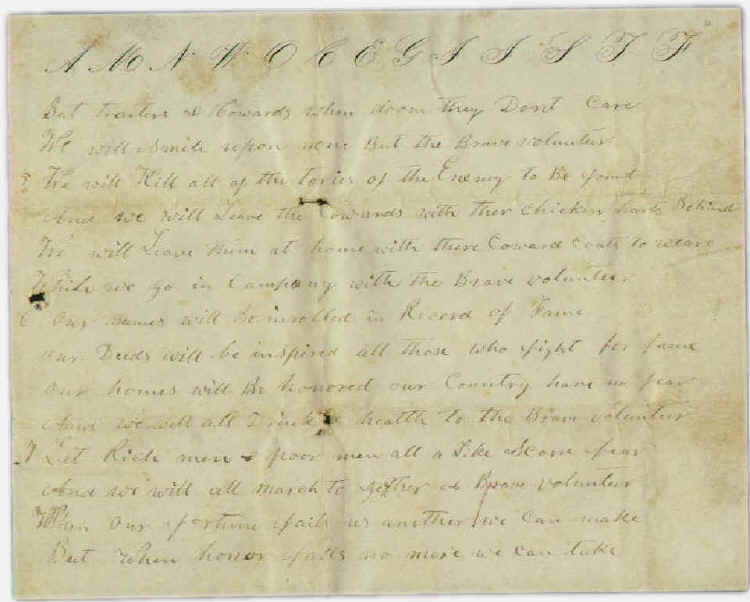 A M N W O C E G I J S T F
But traitors & Cowards when doom they Dont Care
We will Smile upon none But the Brave volunteer
5 We will Kill all of the tories of the Enemy to Be found
And we will Leave the Cowards with ther chicken harts Behind
We will Leave them at home with there Coward Coats to weare
While we go in Company with the Brave volunteer
6 Our names will be inrolled in Record of Fame
our Deeds will be inspired all those who fight for fame
our homes will Be honored our Country have no fear
And we will all Drink a health to the Brave volunteer
7 Let Rich men & poor men all a Like Scorn fear
And we will all march to gether a Brave volunteer
When our fortune fails us another we can make
But when honor fails no more we can take